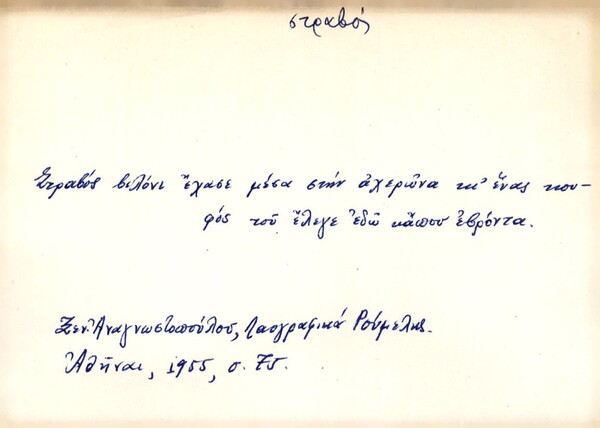 στραβός
Στραβός βελόνι ἔχασε μέσα στήν ἀχερῶνα κι' ἕνας κου-
φός τοῦ ἔλεγε ἐδῶ κἄπου ἐβρόντα.
Ξεν. Ἀναγνωστοπούλου, Λαογραφικά Ρούμελης.
Ἀθῆναι, 1955, σ. 75.